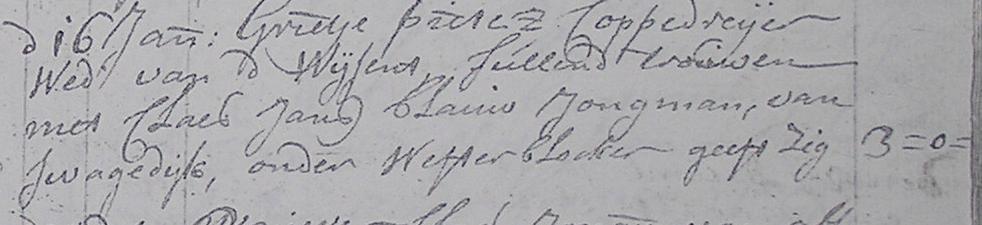 d 16 Jan: Grietje pieters Coppedreijer
Wed van d Wijsent, sullend trouwen
met Claes Jans blauw Jongman, van
Swagedijk, onder Westerblocker geeft Zig 3=0=